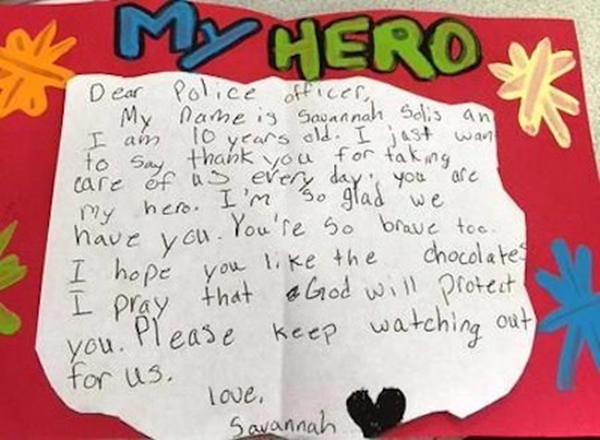 My HERO
Dear Police officer,
My name is Savannah Solis an
I am 10 years old. I just wan
to say thank you for taking
care of us every day. you are
my hero. I'm so glad we
have you. You're so brave too.
I hope you like the chocolates
I pray that God will protect
you. Please keep watching out
for us.
love,
Savannah